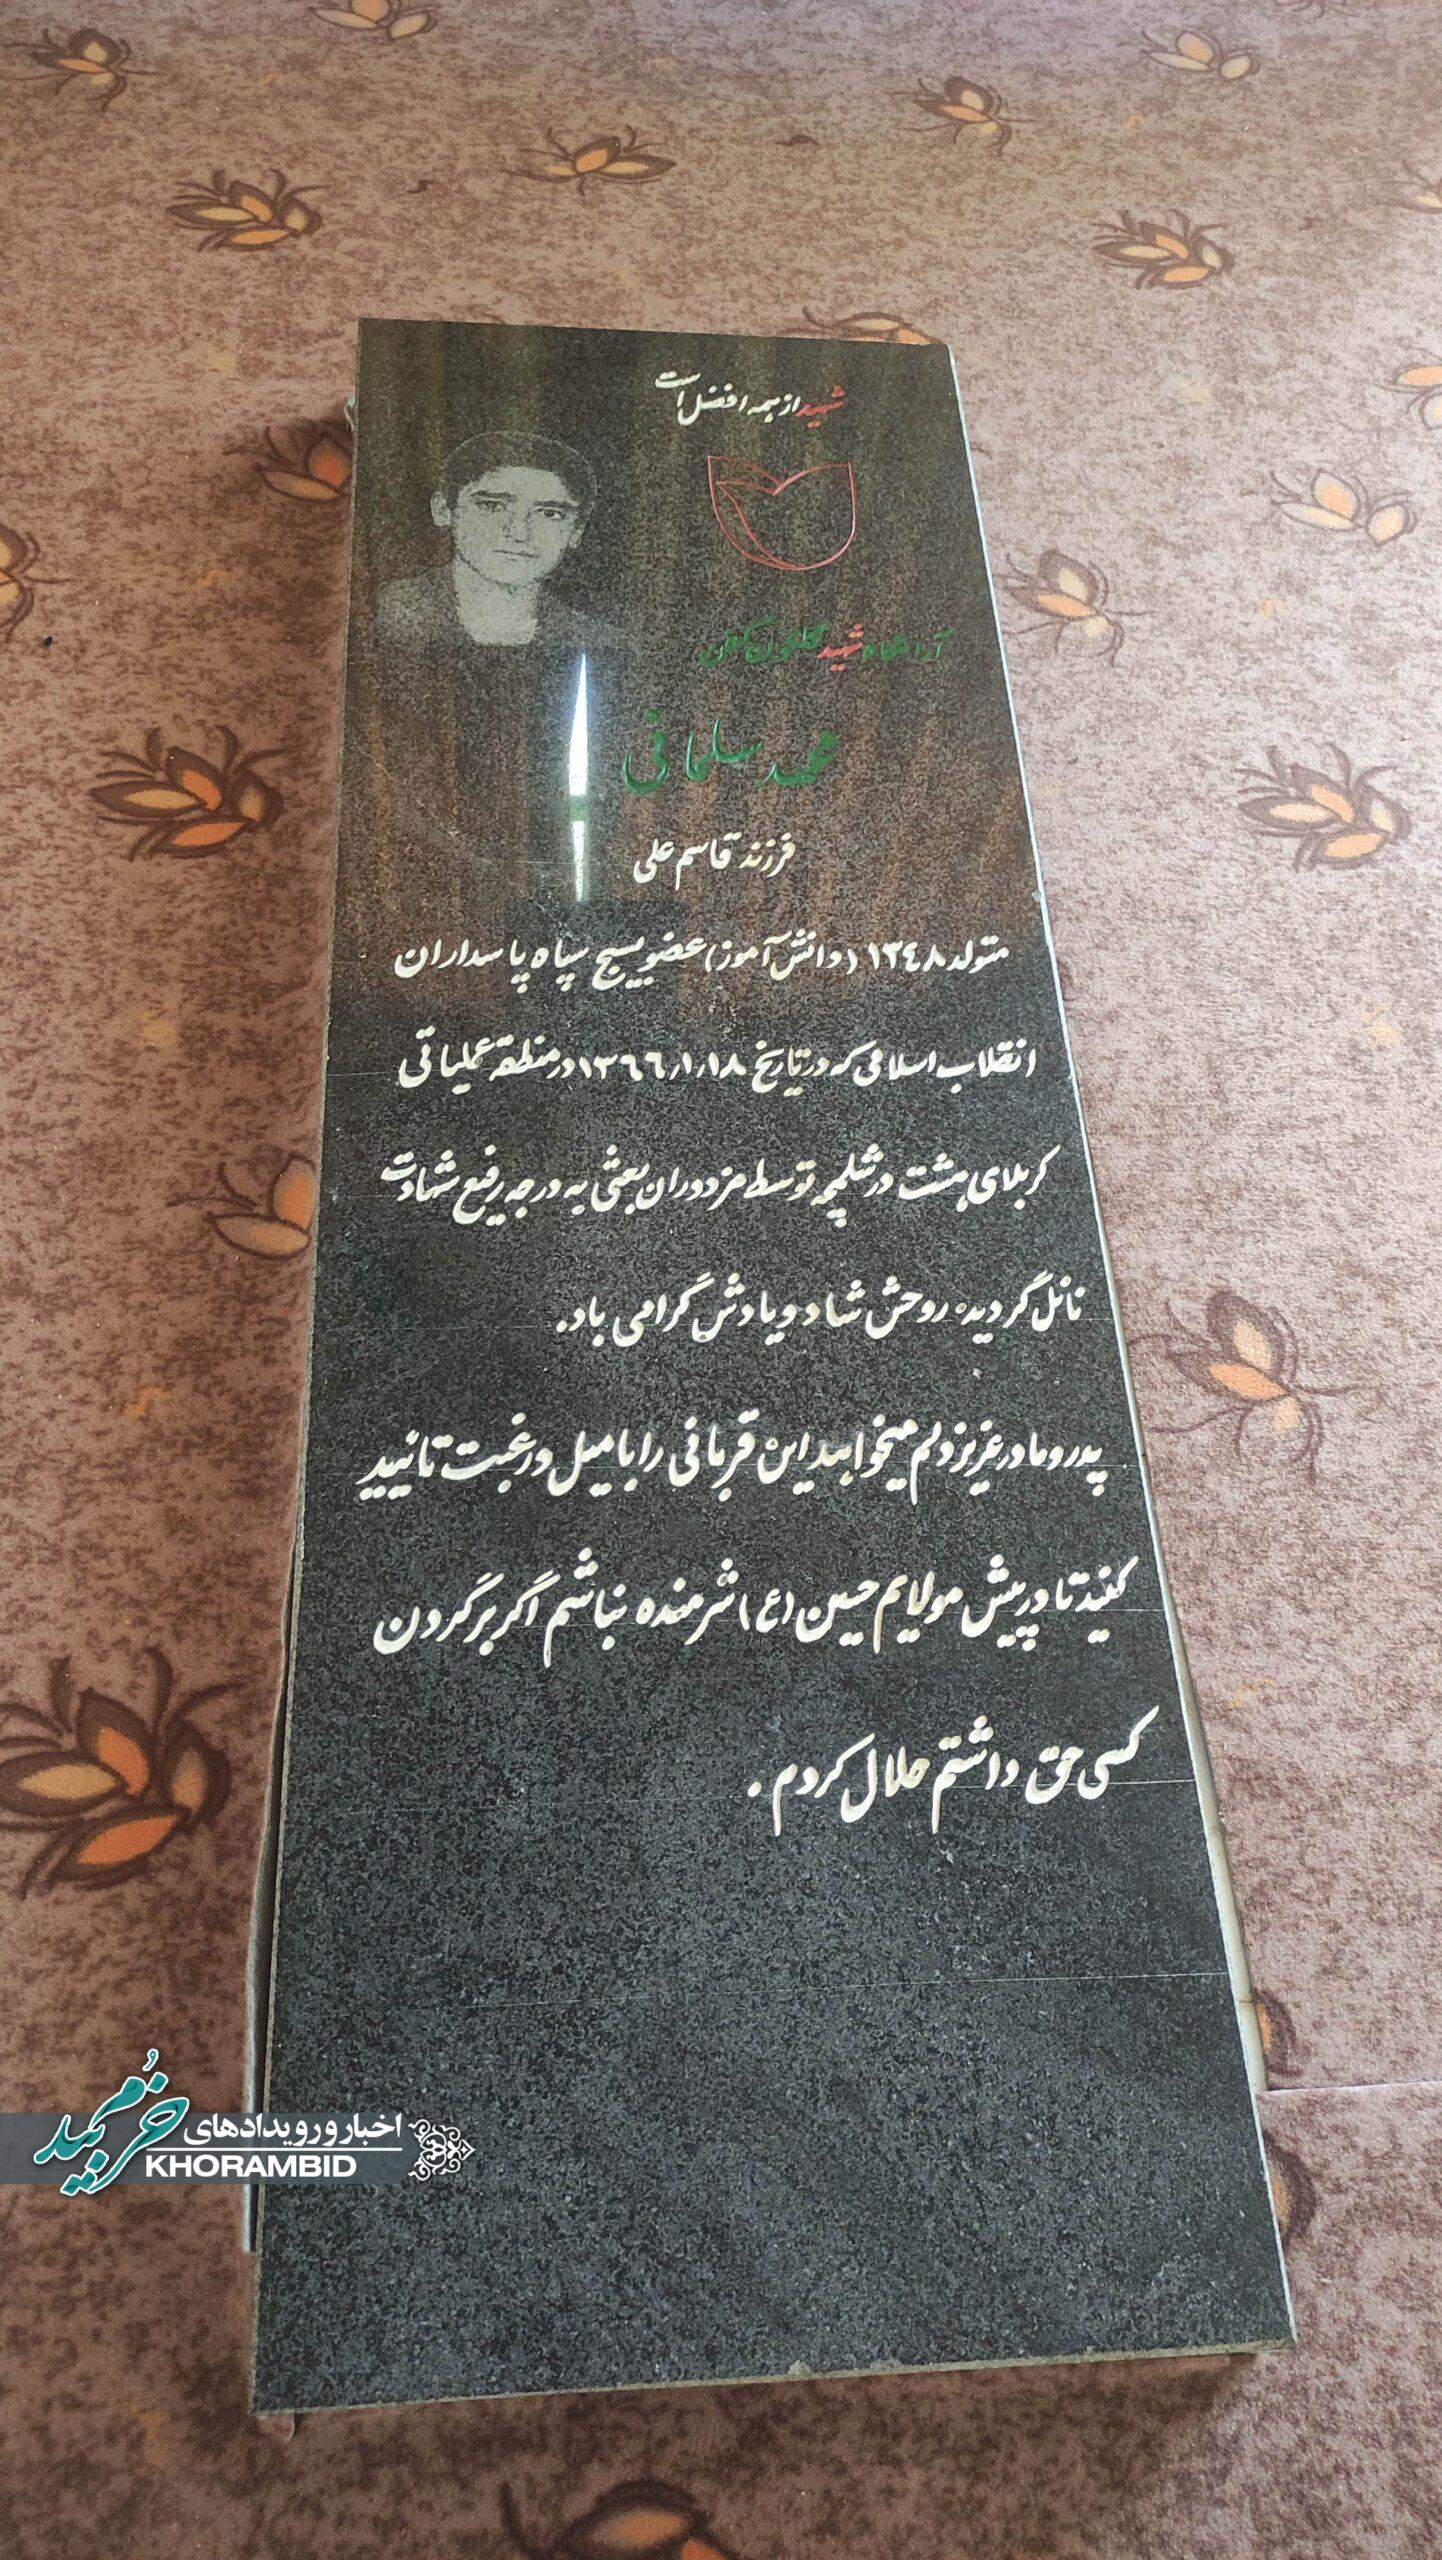 شهید از همه افضل است
آرامگاه شهید گلگون کفن
محمد سلمانی
فرزند قاسم علی
متولد ۱۳۴۸ (دانش آموز) عضو بسیج سپاه پاسداران
انقلاب اسلامی که در تاریخ ۱۳۶۶/۱/۱۸ در منطقه عملیاتی
کربلای هشت در شلمچه توسط مزدوران بعثی به درجه رفیع شهادت
نائل گردید، روحش شاد و یادش گرامی باد.
پدر و مادر عزیزم دلم میخواهد این قربانی را با میل و رغبت تائید
کنید تا در پیش مولایم حسین (ع) شرمنده نباشم اگر بر گردن
کسی حق داشتم حلال کردم.
اخبار و رویدادهای
خرمبید
KHORAMBID